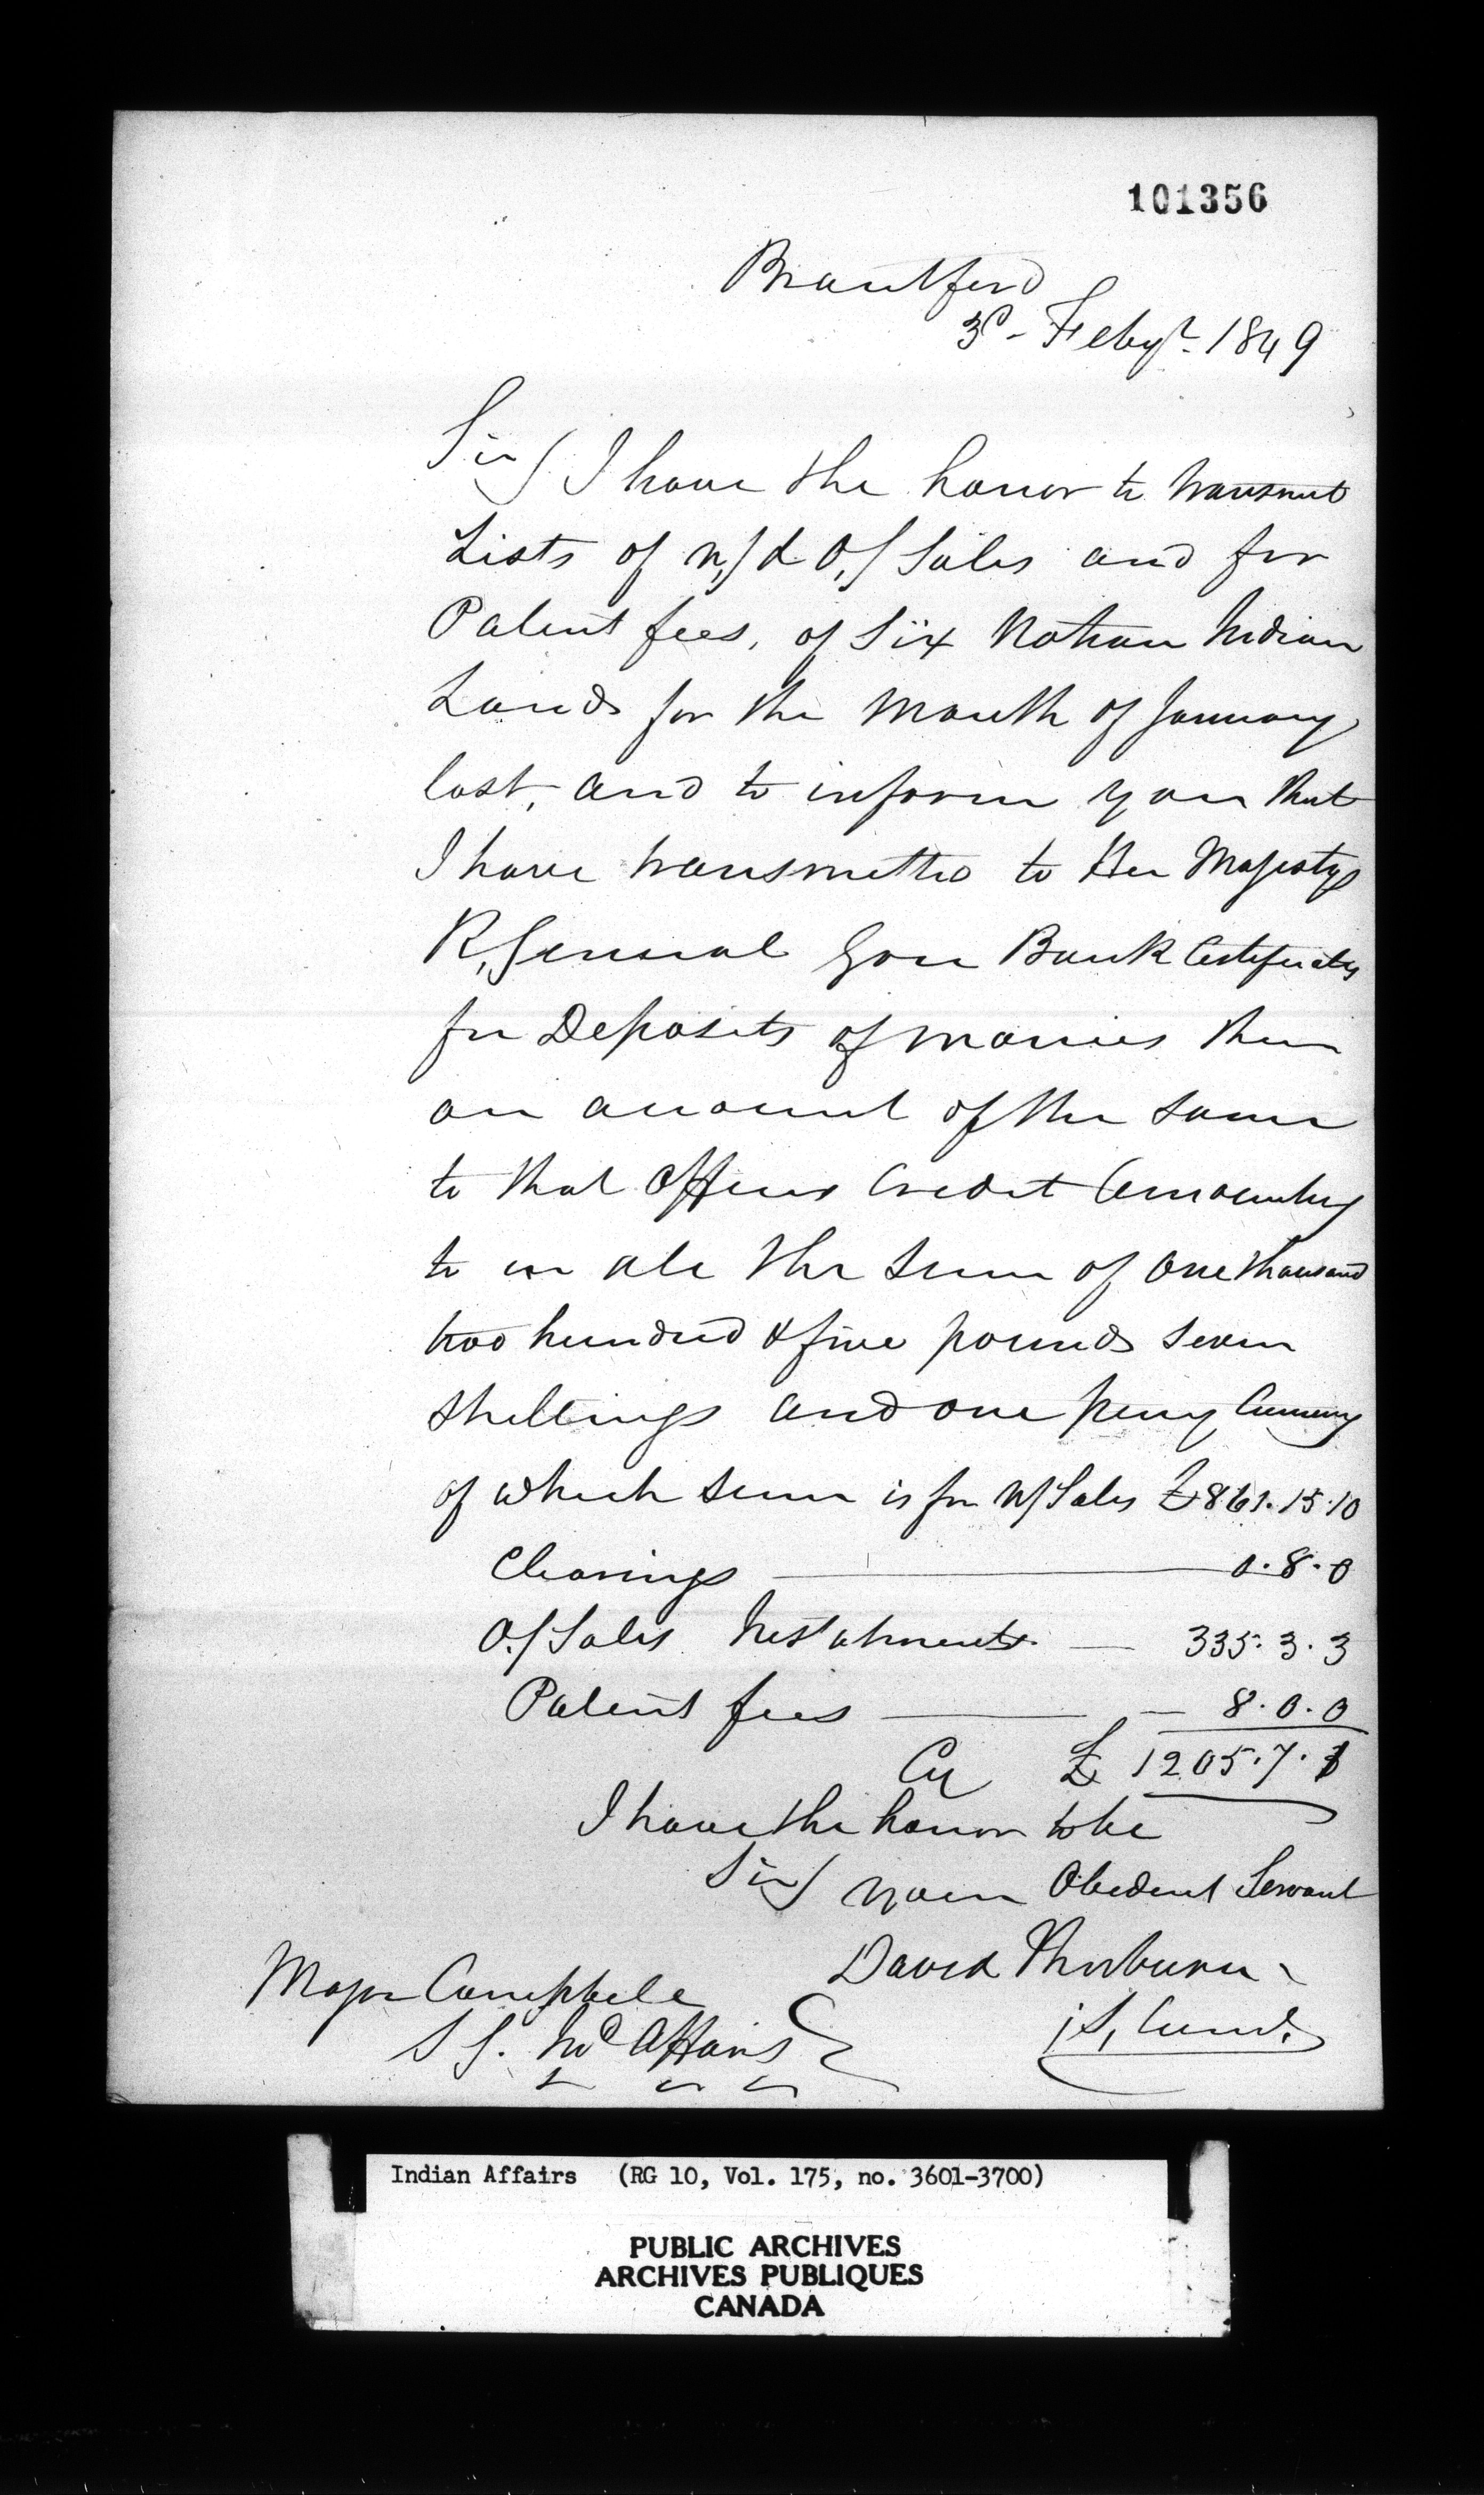 101356
Brantford
3d - Feby. 1849
Sir/ I have the honor to transmit
Lists of N,/ & O,/ Sales and for
Patent fees, of Six Nation Indian
Lands for the Month of January
last, and to inform you that
I have transmitted to Her Majestys
R, General Gore Bank Certificates
for Deposits of monies then
on account of the same
to that Officers Credit Amounting
to in all the sum of One thousand
two hundred & five pounds seven
shillings and one peny Currency
of which sum is for N/ Sales £861.15.10
Clearings 0.8.0
O./ Sales Instalments 335.3.3
Patent fees 8.0.0
Cy £ 1205.7.1
I have the honor to be
Sir/ Your Obedient Servant
David Thorburn
Major Campbell
S G. Ind Affairs
Indian Affairs (RG 10, Vol. 175, no. 3601-3700)
PUBLIC ARCHIVES
ARCHIVES PUBLIQUES
CANADA